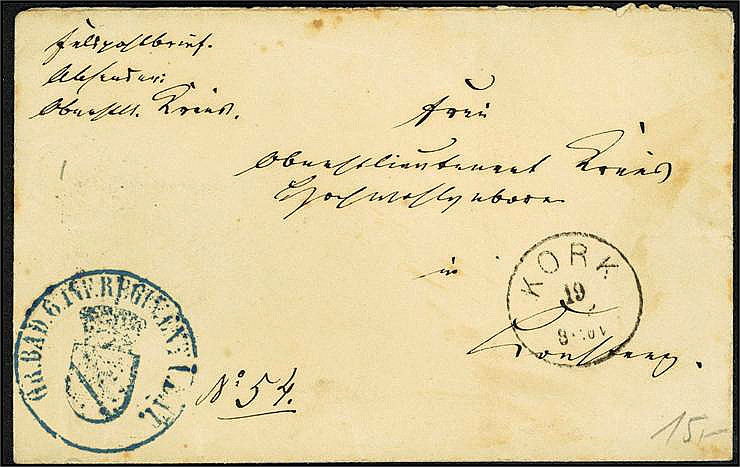 Feldpostbrief.
Absender:
Oberstlt. Kraus.
Frau
Oberstlieutenant Kraus
Hochwohlgeboren
in
Konstanz.
KORK
19
8-10V
GR. BAD. 6. INF. REGIMENT I. BAT.
No. 54.
15,-